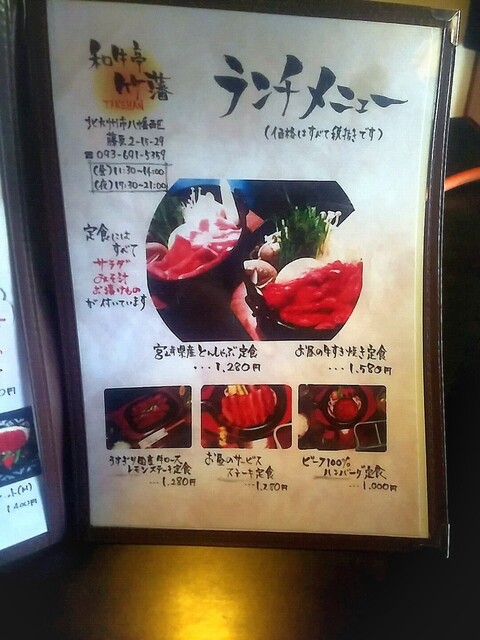 和牛亭
竹藩
TAKEHAN
北九州市八幡西区
藤原2-15-29
☎093-691-5359
(昼)11:30~14:00
(夜)17:30~21:00
ランチメニュー
(価格はすべて税抜きです)
定食には
すべて
サラダ
みそ汁
お漬けもの
が付いています
宮崎県産とんしゃぶ定食
・・・1,280円
お昼の牛すき焼き定食
・・・1,580円
うすぎり国産牛ロース
レモンステーキ定食
・・・1,280円
お昼のサービス
ステーキ定食
・・・1,280円
ビーフ100%
ハンバーグ定食
・・・1,000円
1,400円